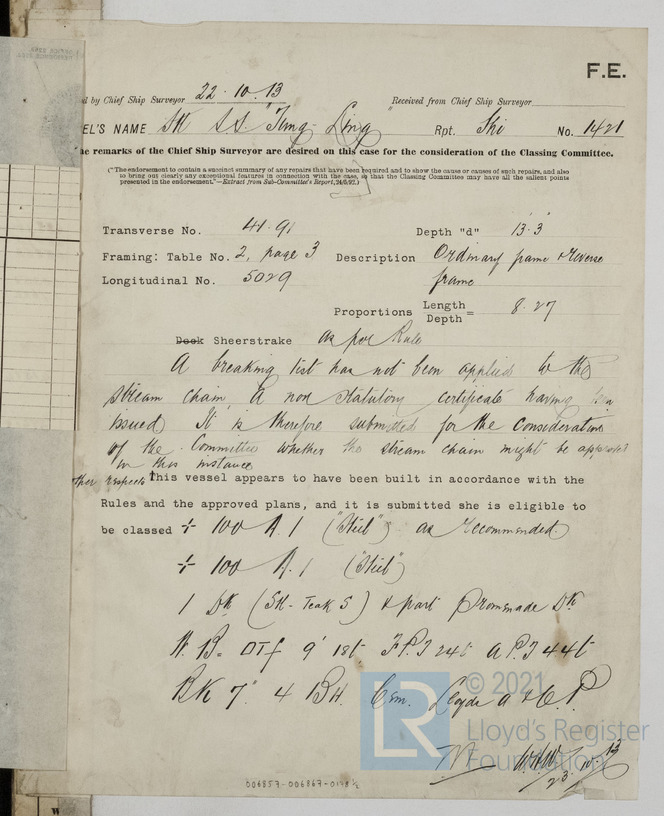 F.E.
d by Chief Ship Surveyor 22.10.13 Received from Chief Ship Surveyor
EL'S NAME SK SS "Tung Ling" Rpt. Ski No. 1421
he remarks of the Chief Ship Surveyor are desired on this case for the consideration of the Classing Committee.
("The endorsement to contain a succinct summary of any repairs that have been required and to show the cause or causes of such repairs, and also
to bring out clearly any exceptional features in connection with the case, so that the Classing Committee may have all the salient points
presented in the endorsement."—Extract from Sub-Committee's Report,
Transverse No. 41.91 Depth "d" 13.3
Framing: Table No. 2, page 3 Description Ordinary frame & reverse
frame
Longitudinal No. 5029
Proportions Length
Depth = 8.27
Deck Sheerstrake as per Rule
A breaking test has not been applied to the
stream chain, A non statutory certificate having been
issued It is therefore submitted for the consideration
of the Committee whether the stream chain might be approved
in this instance
other respects This vessel appears to have been built in accordance with the
Rules and the approved plans, and it is submitted she is eligible to
be classed + 100 A.1 ("Steel") as recommended.
+ 100 A.1 ("Steel")
1 Dk (Stl- Teak S) & part Promenade Dk
W.B= DTf 9' 18t F.P.T 24t A.P.T 44t
BK 7" 4 BH. Cem. Lloyds A & C.P
23.10.13
© 2021
Lloyd's Register
Foundation
LR
006857-006867-0178 1/2